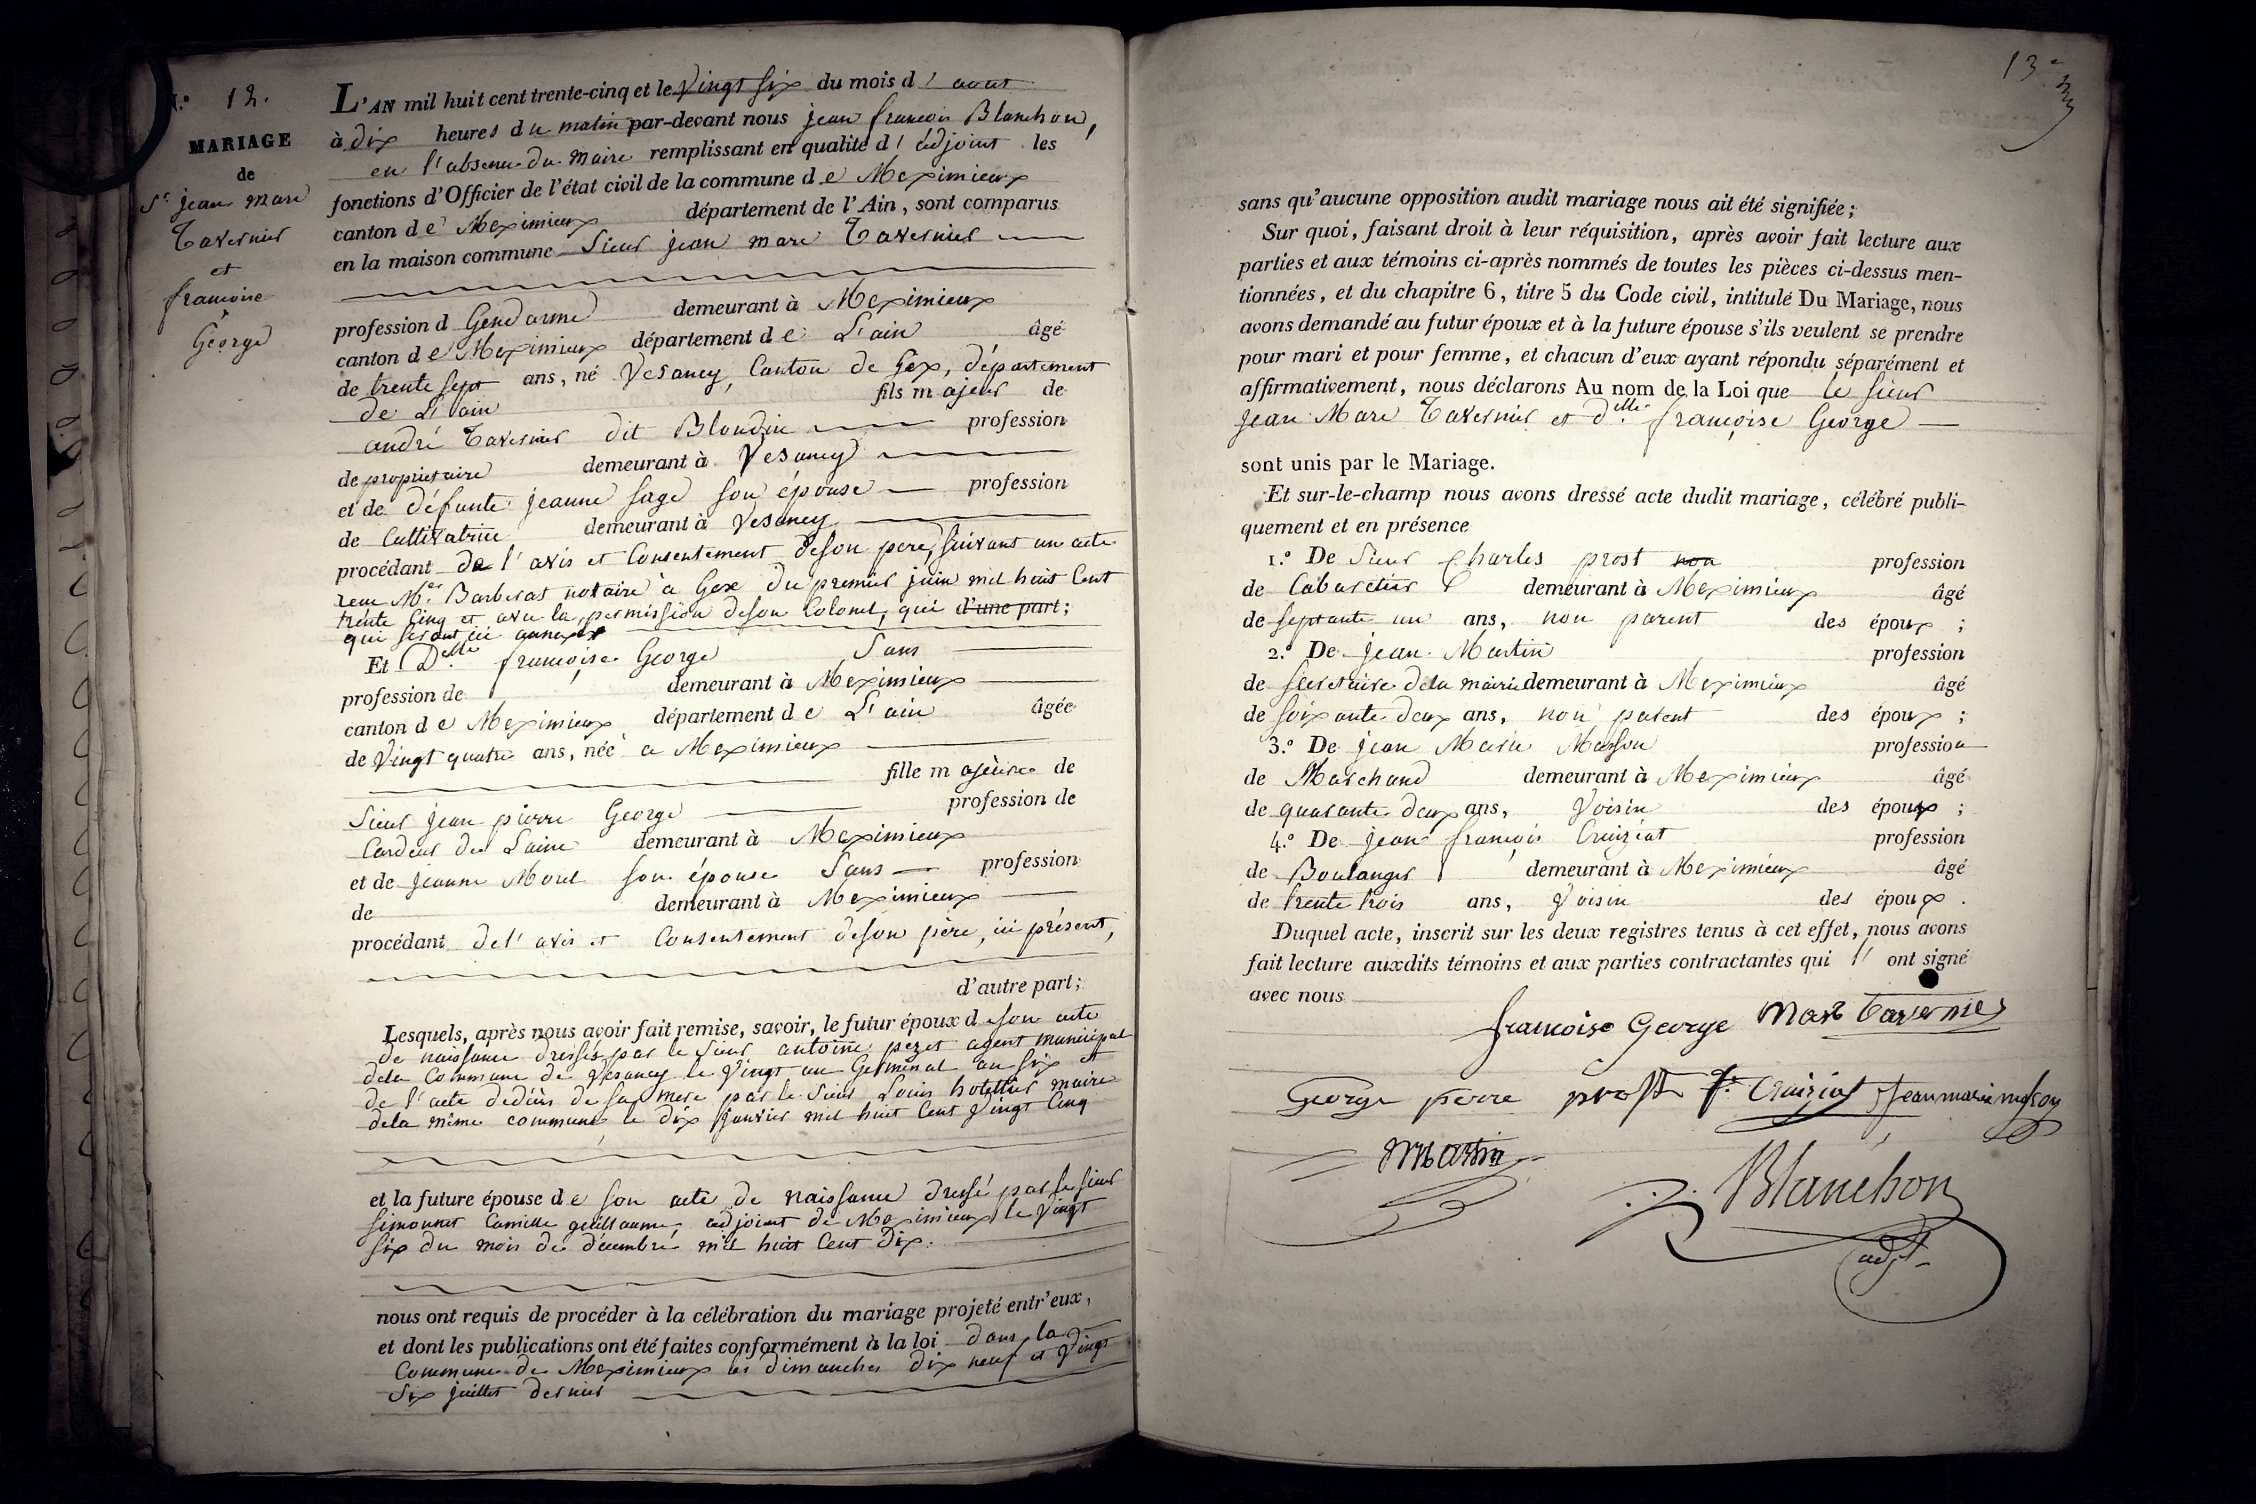 N.º 12.
MARIAGE
de
Sr jean marc
Tavernier
et
francoise
George
L'AN mil huit cent trente-cinq et le Vingt six du mois d'aout
à dix heures du matin par-devant nous jean francois Blanchon,
en l'absence du maire remplissant en qualité d'adjoint les
fonctions d'Officier de l'état civil de la commune de Meximieux
canton de Meximieux département de l'Ain, sont comparus
en la maison commune Sieur jean marc Tavernier
profession d Gendarme demeurant à Meximieux
canton de Meximieux département de L'ain âgé
de trente sept ans, né Vesancy, Canton de Gex, département
de L'ain fils majeur de
andré Tavernier dit Blondin profession
de proprietaire demeurant à Vesancy
et de défunte jeanne sage son épouse profession
de Cultivatrice demeurant à Vesancy
procédant de l'avis et Consentement de son pere, suivant un acte
recu Me Barberat notaire à Gex du premier juin mil huit Cent
trente Cinq et avec la permission de son Colonel, qui d'une part;
qui seront ici annexés
Et Delle françoise George Sans
profession de demeurant à Meximieux
canton de Meximieux département de L'ain âgée
de Vingt quatre ans, née a Meximieux
fille majeure de
Sieur jean pierre George profession de
Cardeur de Laine demeurant à Meximieux
et de jeanne Morel son épouse Sans profession
de demeurant à Meximieux
procédant de l'avis et Consentement de son père, ici présent,
d'autre part;
Lesquels, après nous avoir fait remise, savoir, le futur époux de son acte
de naissance dressé par le Sieur antoine pezet agent municipal
dela Commune de Vesancy le Vingt un Germinal an six et
de l'acte de décès de sa mere par le Sieur Louis hotellier maire
dela même commune, le dix janvier mil huit Cent Vingt Cinq
et la future épouse de son acte de naissance dressé par le sieur
simonnet Camille guillaume, adjoint de Meximieux le Vingt
six du mois de décembre mil huit Cent dix.
nous ont requis de procéder à la célébration du mariage projeté entr'eux,
et dont les publications ont été faites conformément à la loi dans la
Commune de Meximieux les dimanches dix neuf et Vingt
six juillet dernier
13e
sans qu'aucune opposition audit mariage nous ait été signifiée;
Sur quoi, faisant droit à leur réquisition, après avoir fait lecture aux
parties et aux témoins ci-après nommés de toutes les pièces ci-dessus men-
tionnées, et du chapitre 6, titre 5 du Code civil, intitulé Du Mariage, nous
avons demandé au futur époux et à la future épouse s'ils veulent se prendre
pour mari et pour femme, et chacun d'eux ayant répondu séparément et
affirmativement, nous déclarons Au nom de la Loi que le sieur
jean Marc Tavernier et delle françoise George
sont unis par le Mariage.
Et sur-le-champ nous avons dressé acte dudit mariage, célébré publi-
quement et en présence
1.º De Sieur Charles prost non profession
de Cabaretier demeurant à Meximieux âgé
de septante un ans, non parent des époux ;
2.º De jean Martin profession
de secretaire dela mairie demeurant à Meximieux âgé
de soixante deux ans, non parent des époux ;
3.º De jean Marie Masson profession
de Marchand demeurant à Meximieux âgé
de quarante deux ans, Voisin des époux ;
4.º De jean françois Cruiziat profession
de Boulanger demeurant à Meximieux âgé
de trente trois ans, Voisin des époux .
Duquel acte, inscrit sur les deux registres tenus à cet effet, nous avons
fait lecture auxdits témoins et aux parties contractantes qui l'ont signé
avec nous
francoise George Marc Tavernier
George pierre prost f. Cruiziat jean marie masson
Martin
Blanchon
adjt